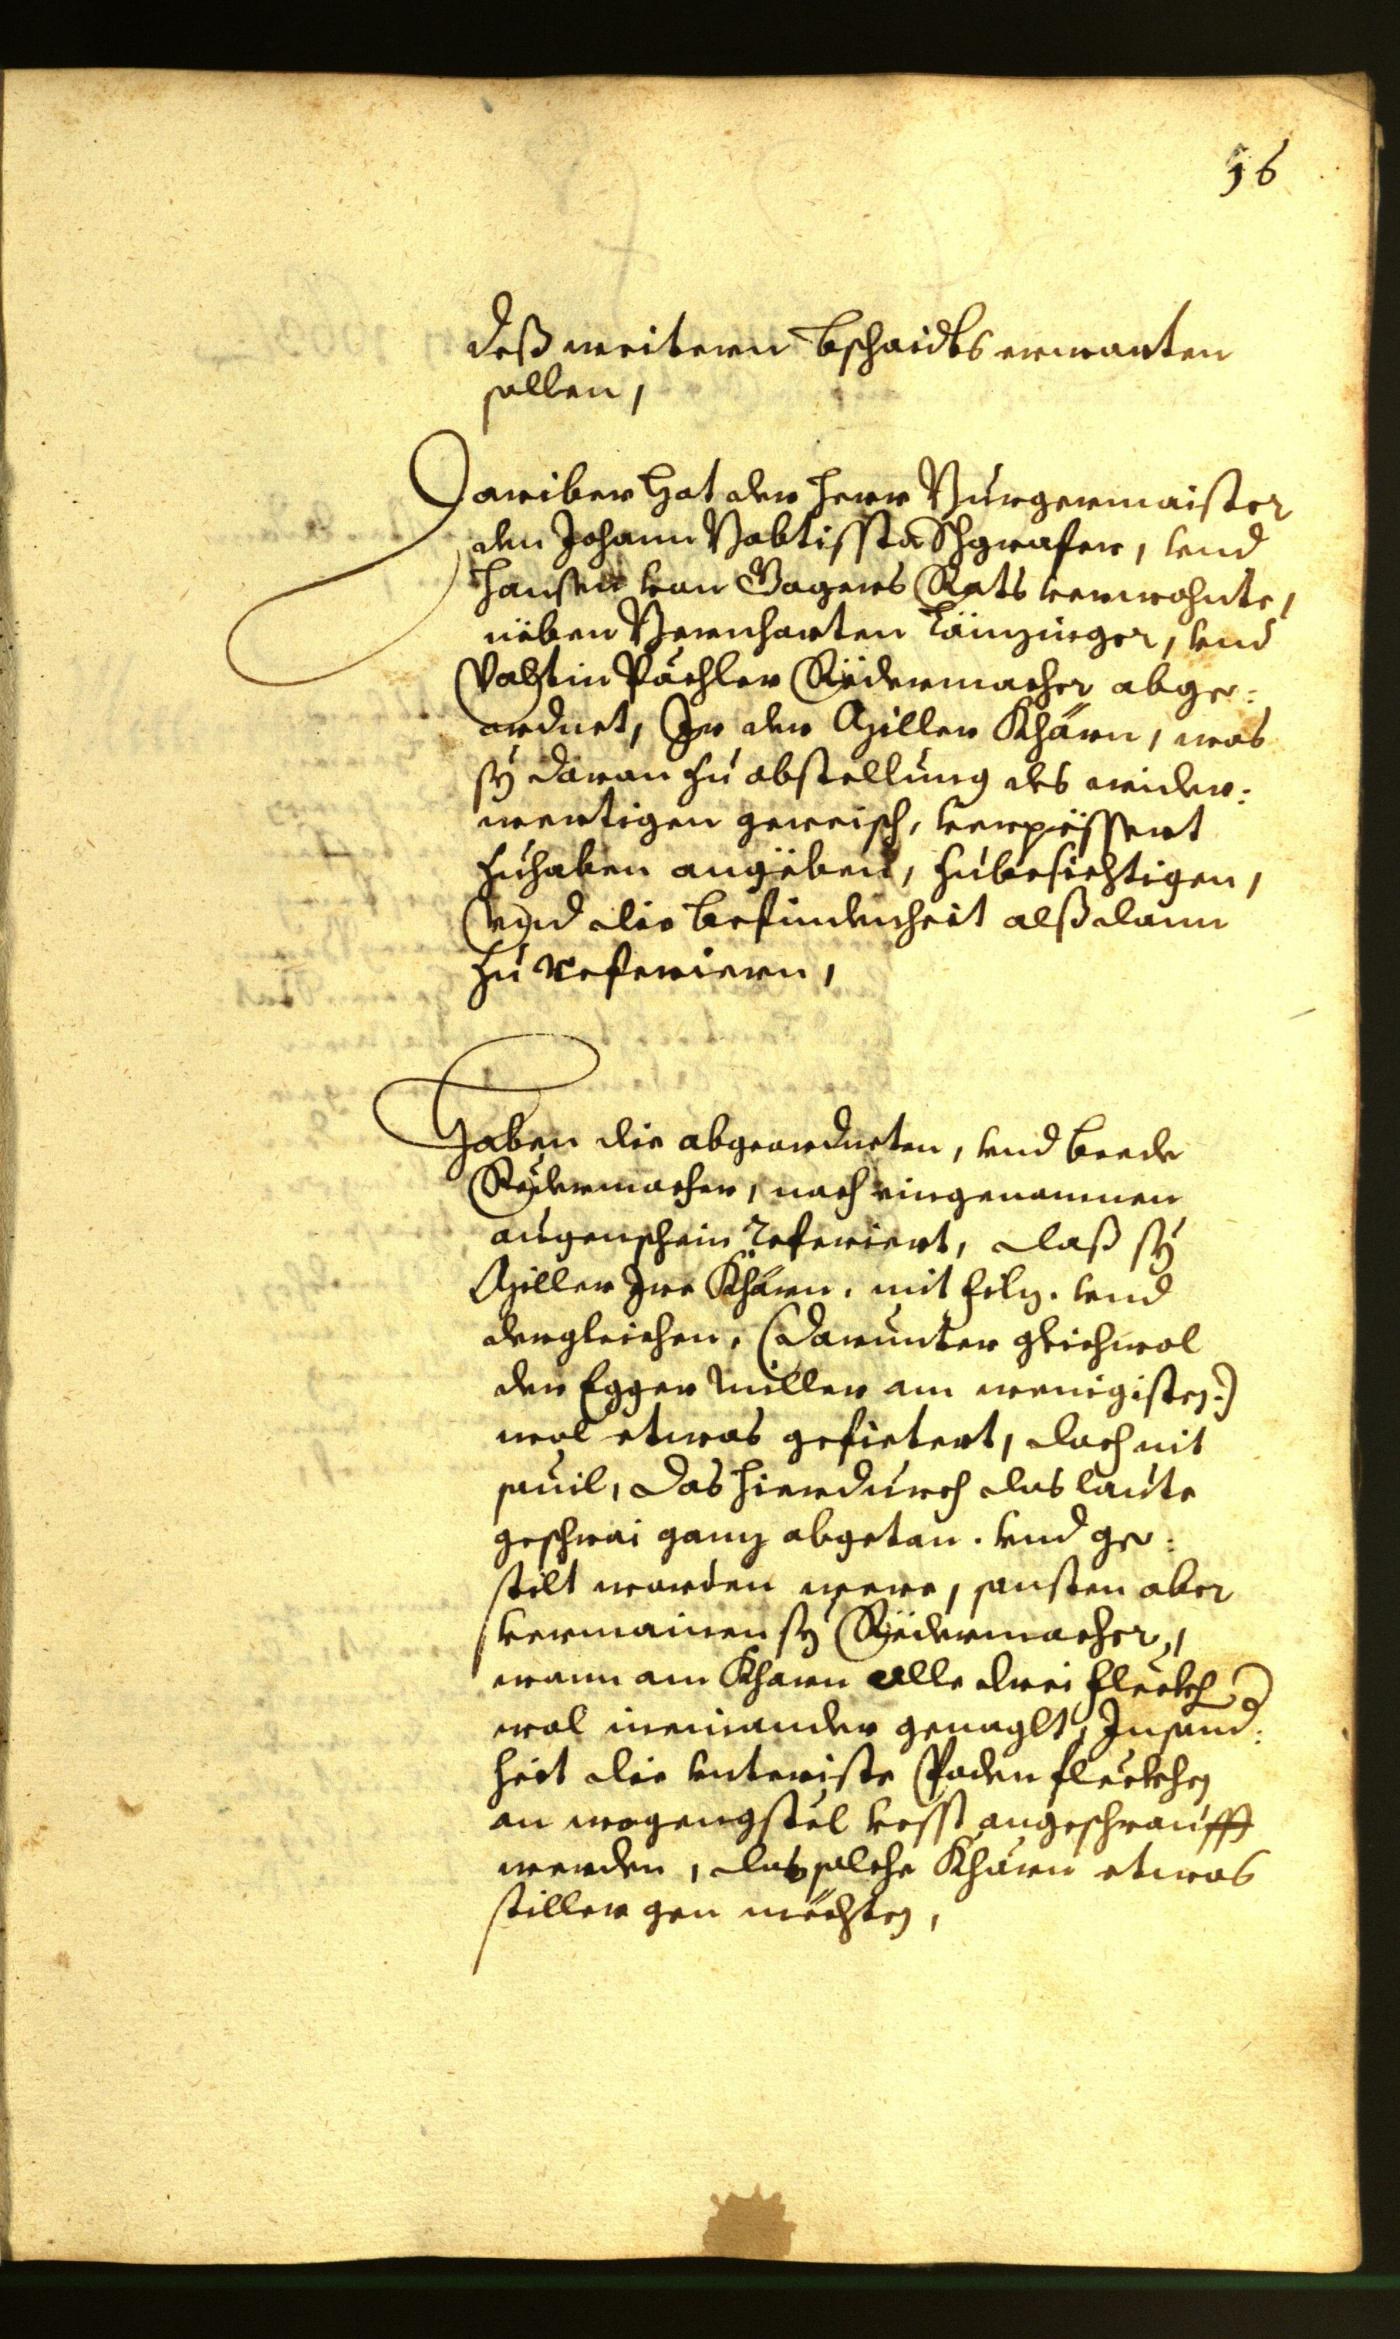 16
deß weitern bschaidts erwarten
sollen,
Dariber hat der Herr Burgermaister
den Johann Babtissta Schgrafer, vnd
Hansen von Gagers Rats verwohnte,
nëben Bernharten Länzinger, vnd
Valtin Pächler Rëdermacher abge:
ordnet, Jr der Miller Khärn, was
sÿ daran zu abstellung des wider:
wertigen gereisch, verpëssert
zuhaben angëben, zubesichtigen,
vnd die befindenheit alß dann
zu referiern,
Haben die abgeordneten, vnd beede
Rëdermacher, nach eingenommen
augenschein referiert, daß sÿ
Miller Jre Khärn, mit filz. vnd
dergleichen, (darunter gleichwol
der Egger Miller am wenigisten)
wol etwas gefietert, doch nit
souil, das hierdurch das laute
geschrai ganz abgetan. vnd ge:
stilt worden were, sonsten aber
vermainen sÿ Rëdermacher,
wann am Kharn alle drei fleckh
wol ineinander genaglt, Jnsond:
heit die unteriste Poden fleckhen
an wogengstel vësst angeschraufft
werden, das solche Khärn etwas
stiller gen mechten,